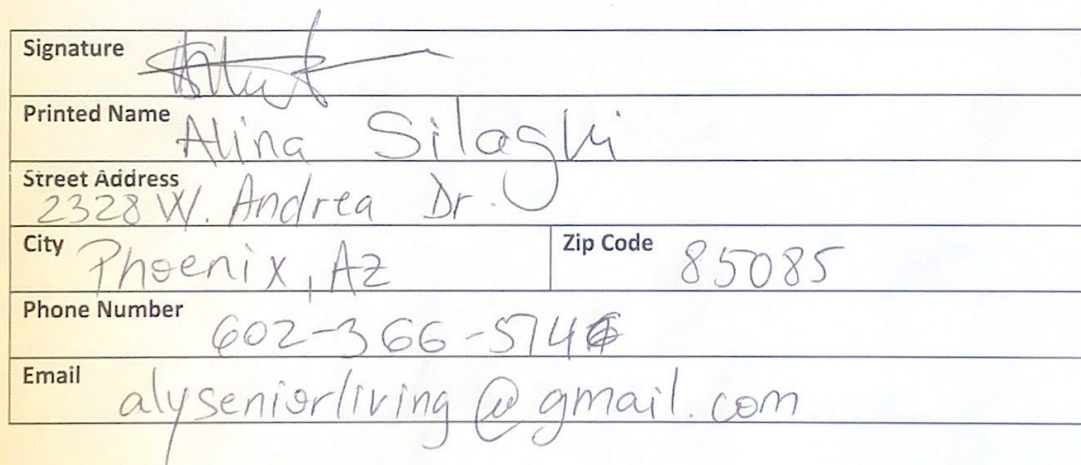 Signature
Printed Name Alina Silaghi
Street Address
2328 W. Andrea Dr.
City Phoenix, AZ Zip Code 85085
Phone Number 602-366-574
Email alyseniorliving@gmail.com